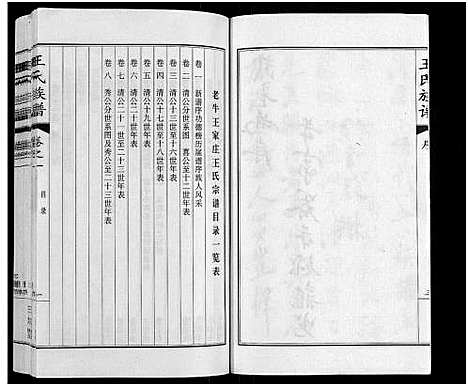 王氏族譜
序
老牛王家庄王氏宗谱目录一览表
卷一 新谱序功德榜历届谱序族人风采
卷二 清公分世系图 喜公至十二世年表
卷三 清公十三世至十六世年表
卷四 清公十七世至十八世年表
卷五 清公十九世年表
卷六 清公二十世年表
卷七 清公二十一世至二十三世年表
卷八 秀公分世系图及秀公至二十三世年表
王氏族譜
卷之一
目录